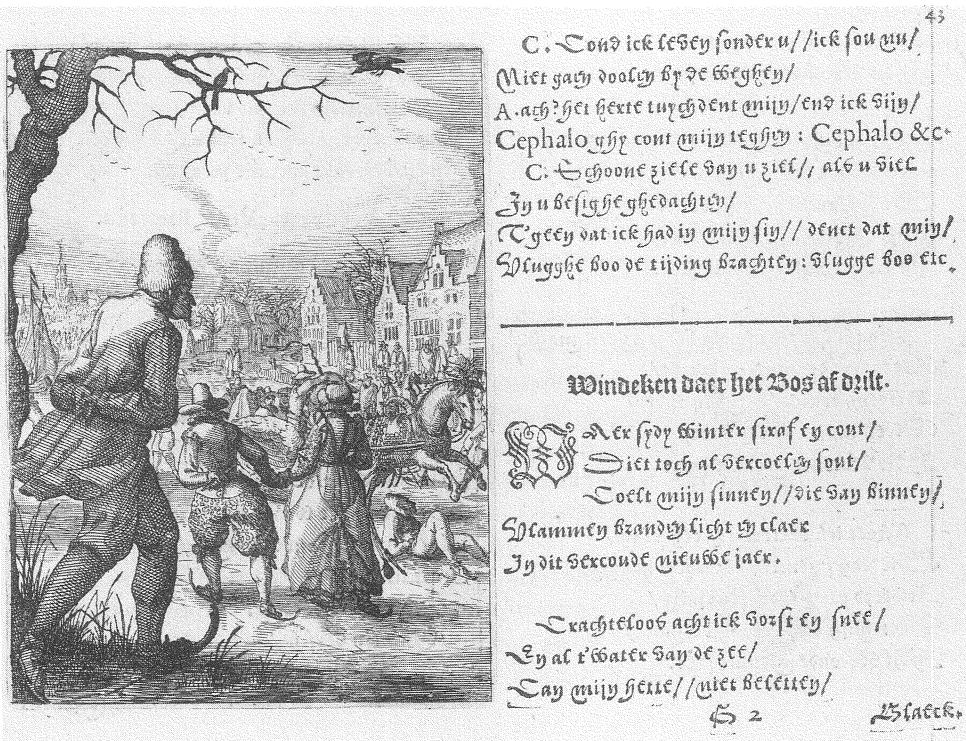 43
C. Cond ick leven sonder u//ick sou nu/
Niet gaen doolen by de weghen/
A. ach! het herte tuychdent mijn/end ick dijn/
Cephalo ghy cont mijn teghen: Cephalo &c.
C. Schoone ziele van u ziel//, als u viel
In u besighe ghedachten/
T'geen dat ick had in mijn sin// denct dat mijn/
Vlugghe boo de tijding brachten: vlugge boo etc.
Windeken daer het Bos af drilt.
WAer sydy winter straf en cout/
Diet toch al vercoelen sout/
Coelt mijn sinnen//die van binnen/
Vlammen branden licht en claer
In dit vercoude nieuwe jaer.
Crachteloos acht ick vorst en snee/
En al t'water van de zee/
Can mijn hette//niet beletten/
G 2
Blaeck.